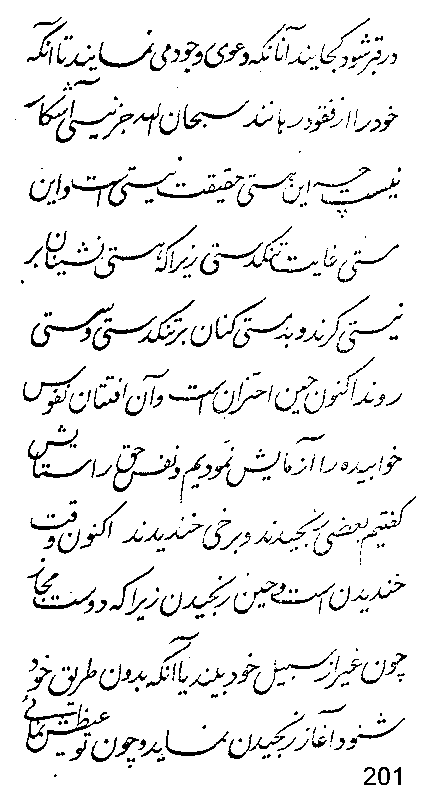 در قبر شود کجایند آنانکه دعوی وجود می نمایند تا آنکه
خود را از فقود رهانند سبحان الله جز نیستی آشکار
نیست چه این هستی حقیقت نیستی است و این
مستی غایت تنگدستی زیرا که هستی نشینان بر
نیستی گروند و بدمستی کنان بر تنگدستی و سستی
روند اکنون حین احتران است و آن افتتان نفوس
خوابیده را آزمایش نمودیم و نفس حق را ستایش
گفتیم بعضی رنجیدند و برخی خندیدند اکنون وقت
خندیدن است و حین رنجیدن زیرا که دوست مجاز
چون غیر از سبیل خود بیند یا آنکه بدون طریق خود
شنود آغاز رنجیدن نماید و چون تو
201